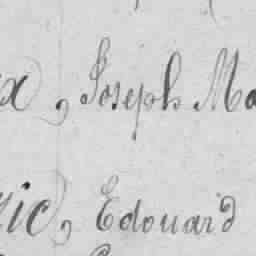 x, Joseph Ma
ic, Edouard